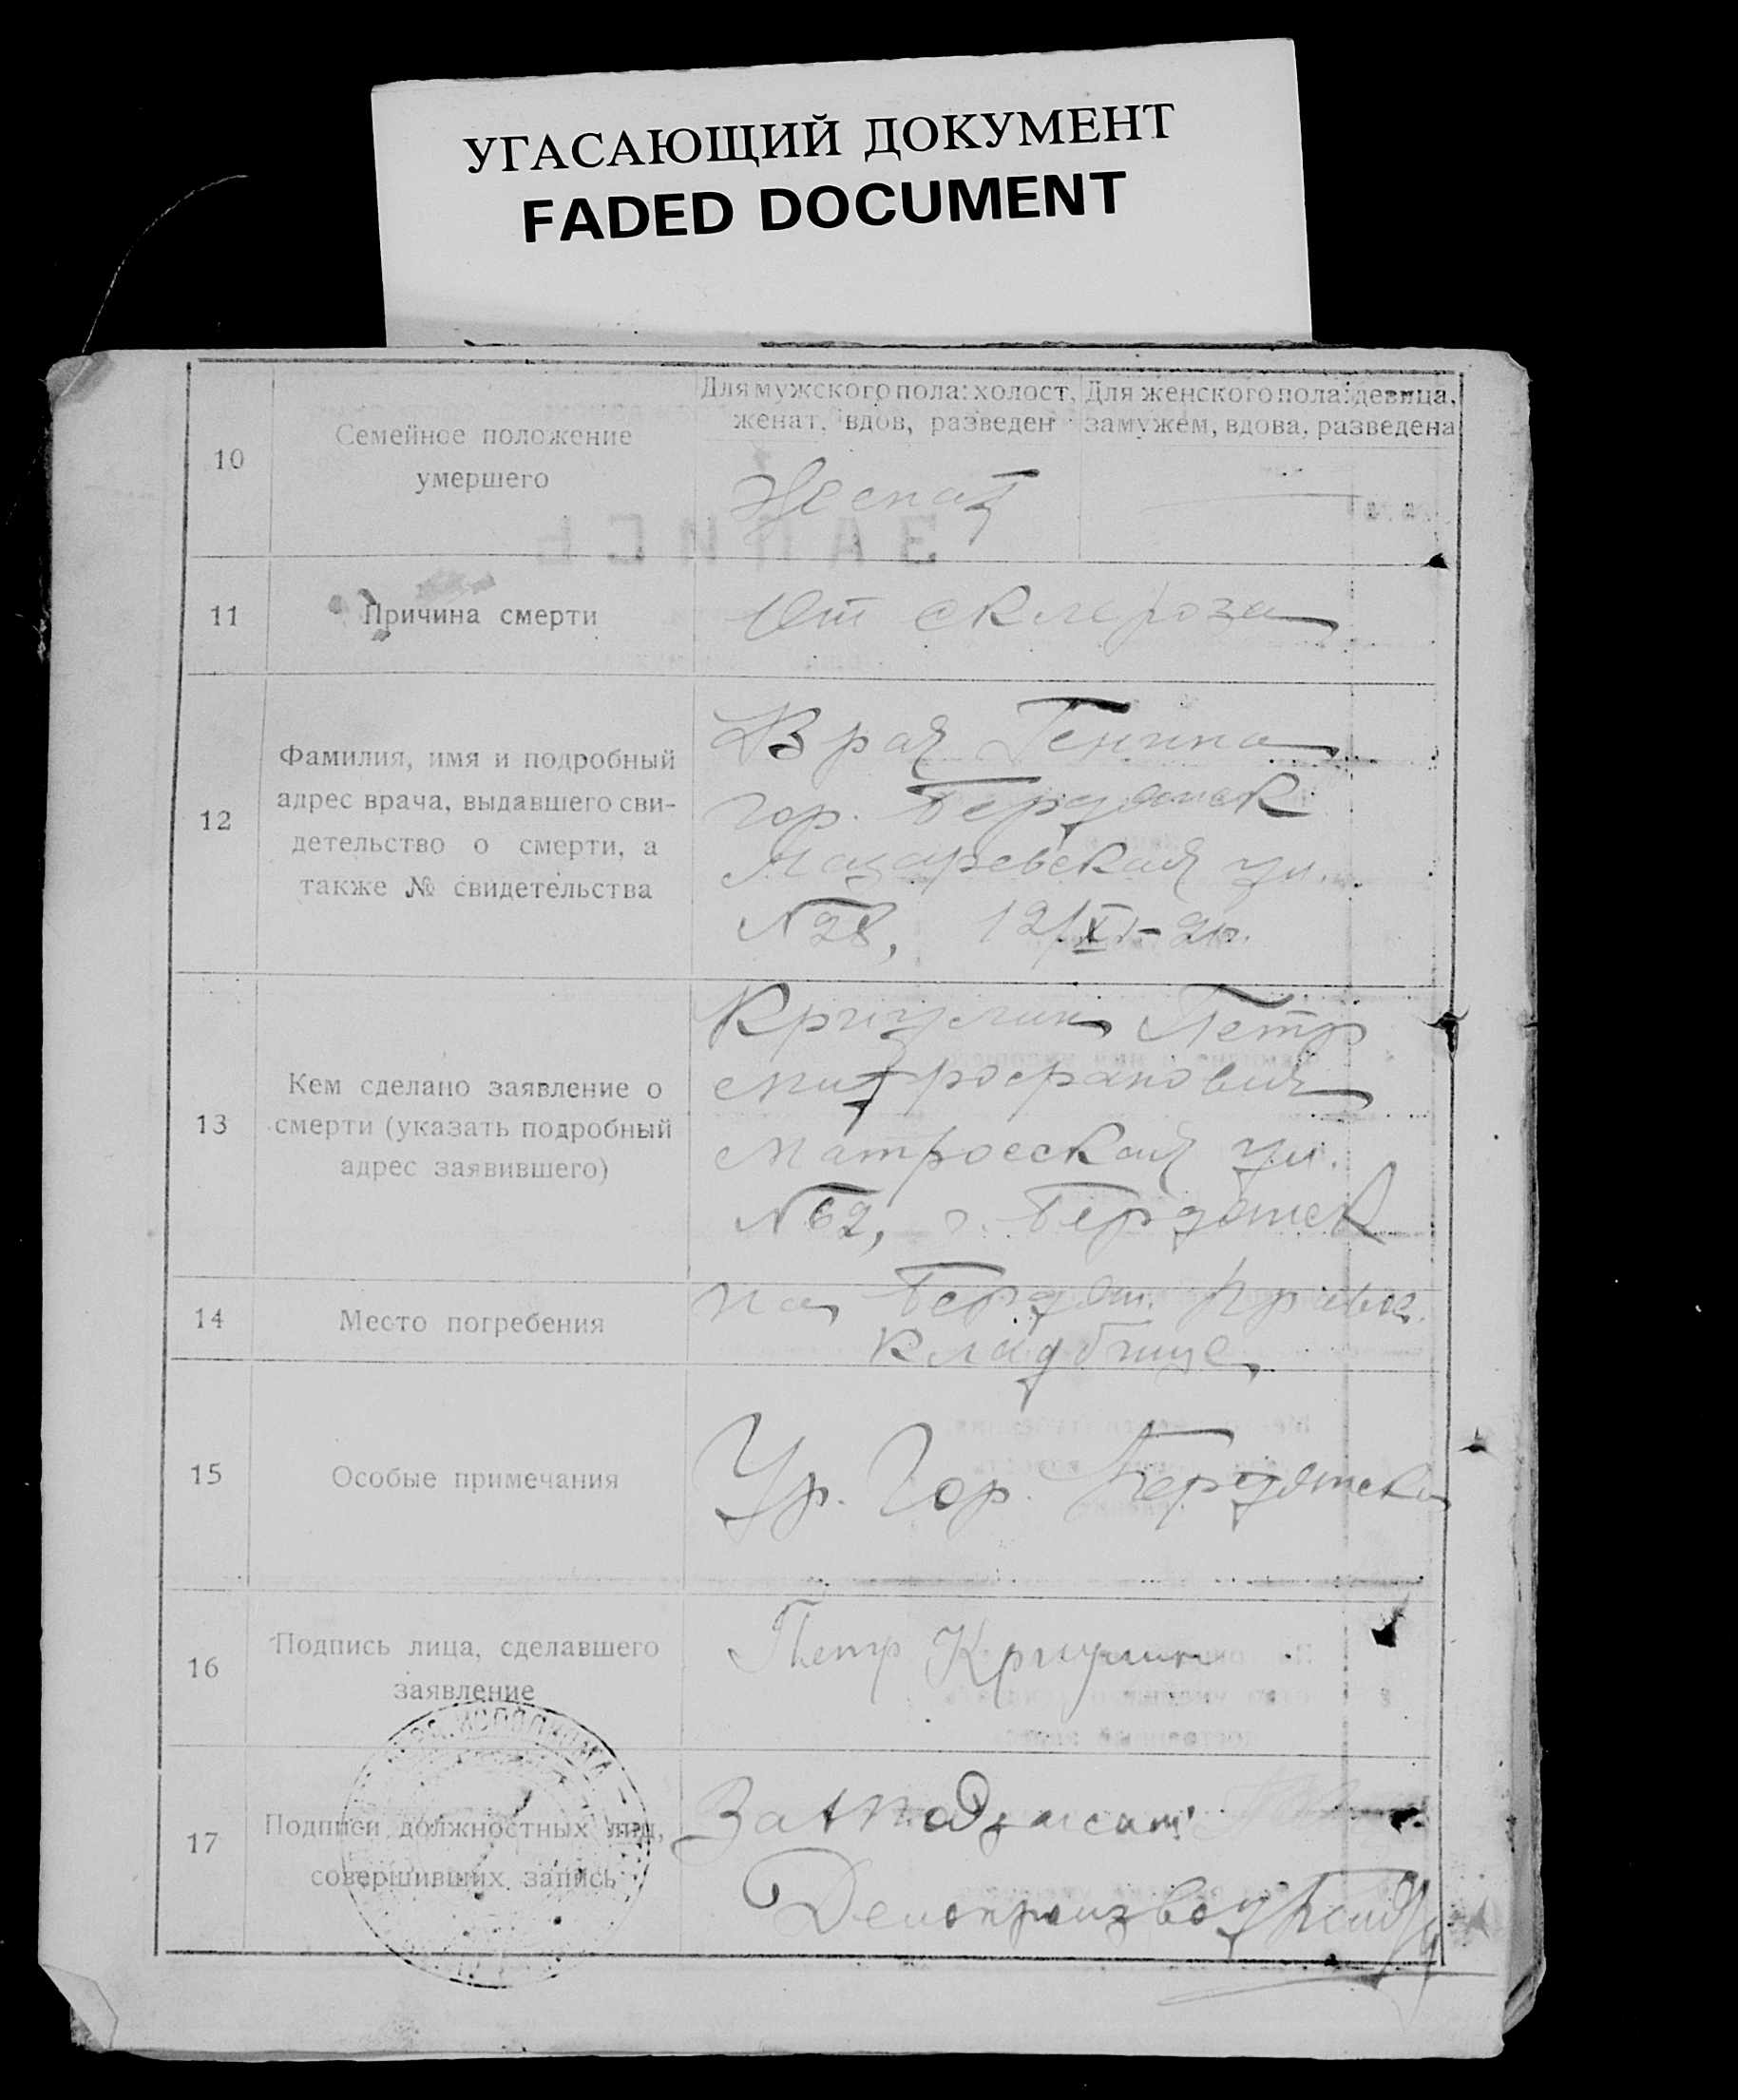 УГАСАЮЩИЙ ДОКУМЕНТ
FADED DOCUMENT
10
Семейное положение
умершего
Для мужского пола: холост,
женат, вдов, разведен
Для женского пола: девица,
замужем, вдова, разведена
Женат
ЗАПИСЬ
11
Причина смерти
От склероза
12
Фамилия, имя и подробный
адрес врача, выдавшего сви-
детельство о смерти, а
также № свидетельства
Врач Генина
гор. Бердянск
ул.
№28, 12/XI-
13
Кем сделано заявление о
смерти (указать подробный
адрес заявившего)
Петр
Митрофанович
Матросская ул.
№62, г. Бердянск
14
Место погребения
на Бердян.
кладбище
15
Особые примечания
Ур. Гор. Бердянска
16
Подпись лица, сделавшего
заявление
Петр
17
Подписи должностных лиц,
совершивших запись
Делопроизвод